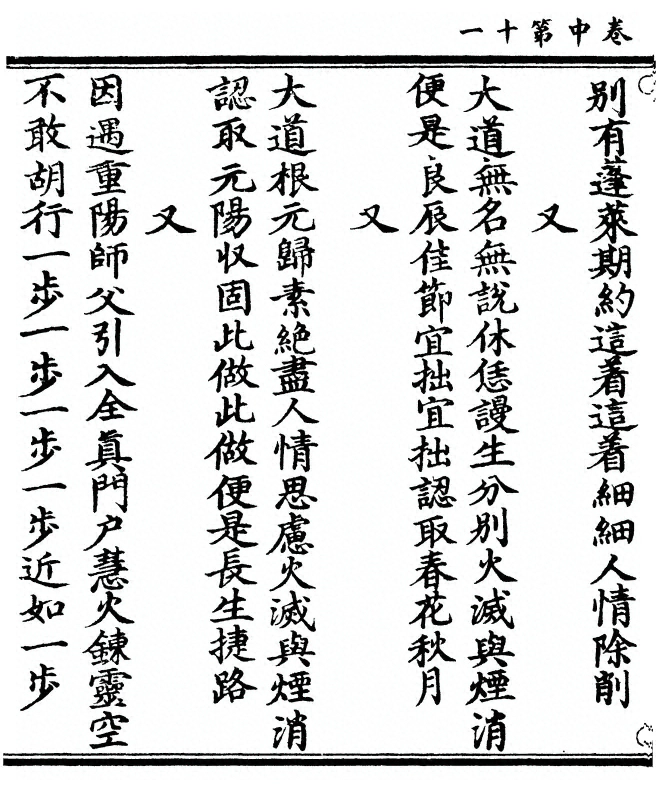 卷中第十一
別有蓬萊期約這着這着細細人情除削
又
大道無名無說休恁謾生分別火滅與煙消
便是良辰佳節宜拙宜拙認取春花秋月
又
大道根元歸素絶盡人情思慮火滅與煙消
認取元陽收固此做此做便是長生捷路
又
因遇重陽師父引入全眞門户慧火鍊靈空
不敢胡行一步一步一步一步近如一步